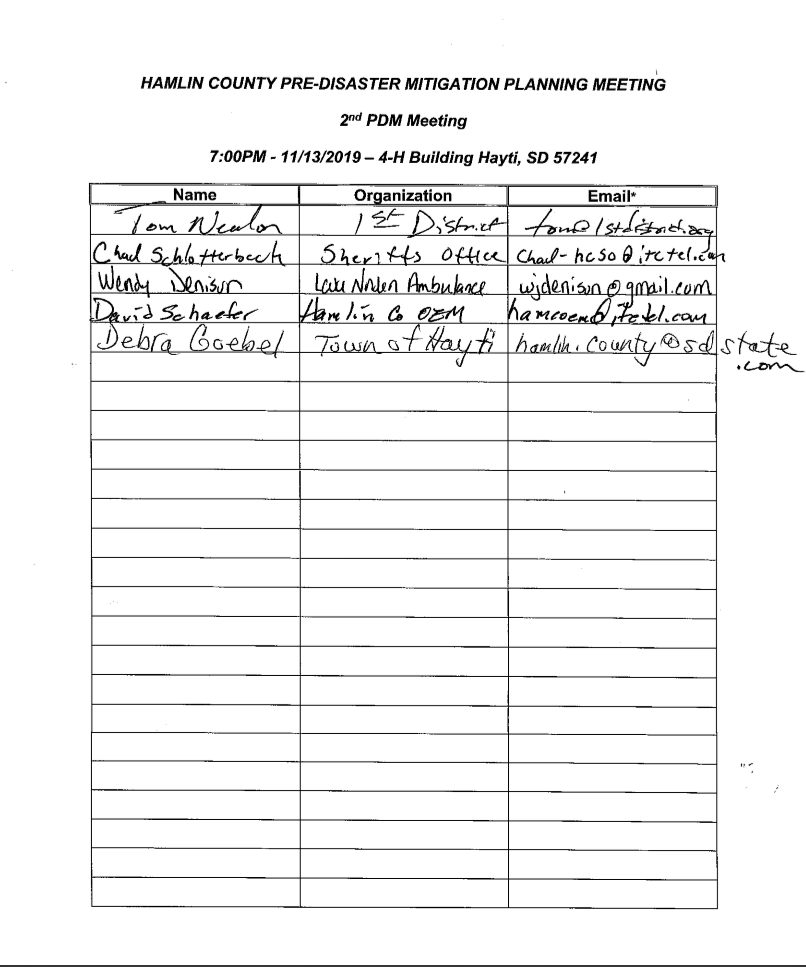 HAMLIN COUNTY PRE-DISASTER MITIGATION PLANNING MEETING
2nd PDM Meeting
7:00PM - 11/13/2019 – 4-H Building Hayti, SD 57241
Name Organization Email*
Tom 1st District tom@1stdistrict.org
Chad Schlotterbeck Sheriffs Office Chad-hcso@itctel.com
Wendy Denison Lake Norden Ambulance wjdenison@gmail.com
David Schaefer Hamlin Co OEM hamcoem@itctel.com
Debra Goebel Town of Hayti hamlin.county@sdstate
.com